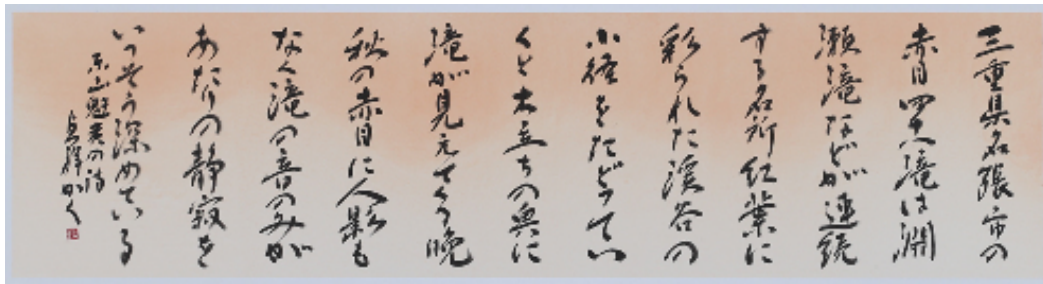 三重県名張市の
赤目四十八滝は渕
瀬滝などが連続
する名所紅葉に
彩られた渓谷の
小径をたどってい
くと木立ちの奥に
滝が見えてくる晩
秋の赤目に人影も
なく滝の音のみが
あたりの静寂を
いっそう深めている
東山魁夷の詩
かく